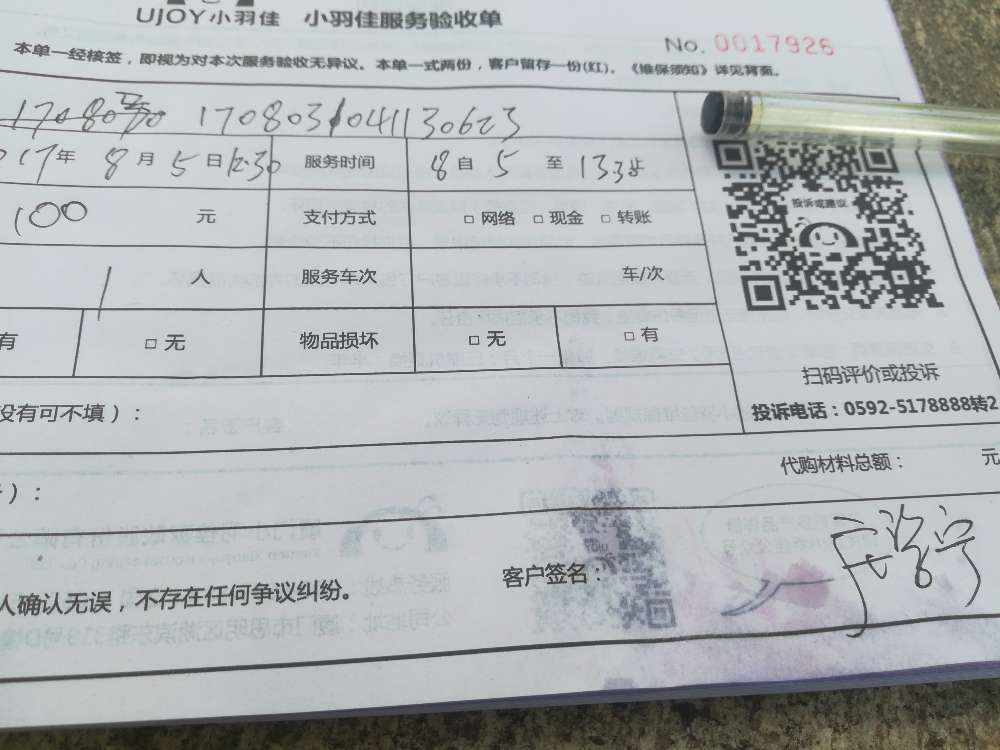 UJOY小羽佳 小羽佳服务验收单
No. 0017926
本单一经核签，即视为对本次服务验收无异议。本单一式两份，客户留存一份(红)。《维保须知》详见背面。
170803104130623
017年 8月 5日 12:30 服务时间 8 自 5 至 13
100 元 支付方式 □ 网络 □ 现金 □ 转账
投诉或建议
1 人 服务车次 车/次
有 □ 无 物品损坏 □ 无 □ 有
扫码评价或投诉
没有可不填）：
投诉电话：0592-5178888转2
代购材料总额： 元
）：
客户签名：
人确认无误，不存在任何争议纠纷。